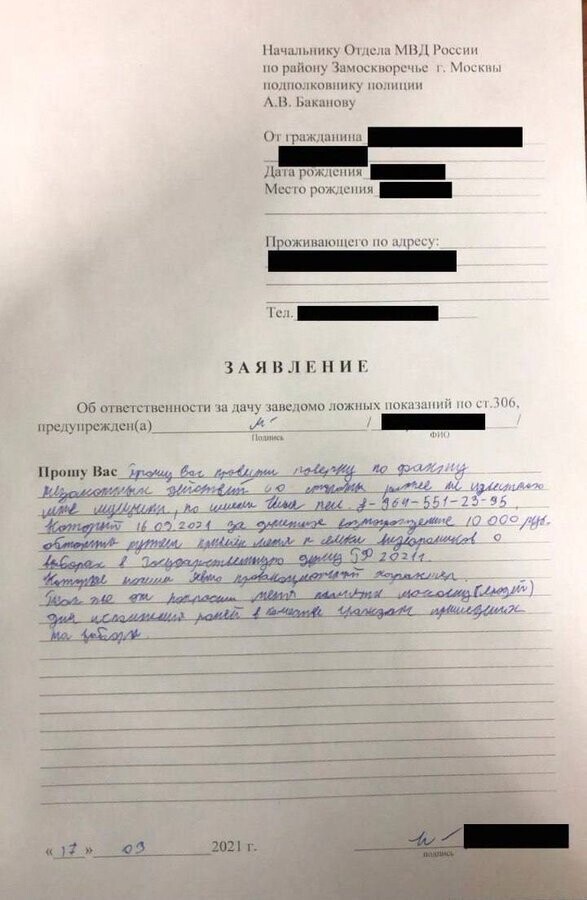 Начальнику Отдела МВД России
по району Замоскворечье г. Москвы
подполковнику полиции
А.В. Баканову
От гражданина
Дата рождения
Место рождения
Проживающего по адресу:
Тел.
ЗАЯВЛЕНИЕ
Об ответственности за дачу заведомо ложных показаний по ст.306,
предупрежден(а) / /
Подпись ФИО
Прошу Вас Прошу Вас провести по факту
незаконных действий со стороны ранее не известного
мне мужчины, по имени тел. 8-964-551-23-95
Который 16.09.2021 за денежное вознаграждение 10 000 руб.
меня к видеороликов о
выборах в Государственную думу РФ 2021г.
характер.
Так же он попросил меня (людей)
для ролей в качестве граждан пришедших
на выборы.
«17» 09 2021 г.
подпись